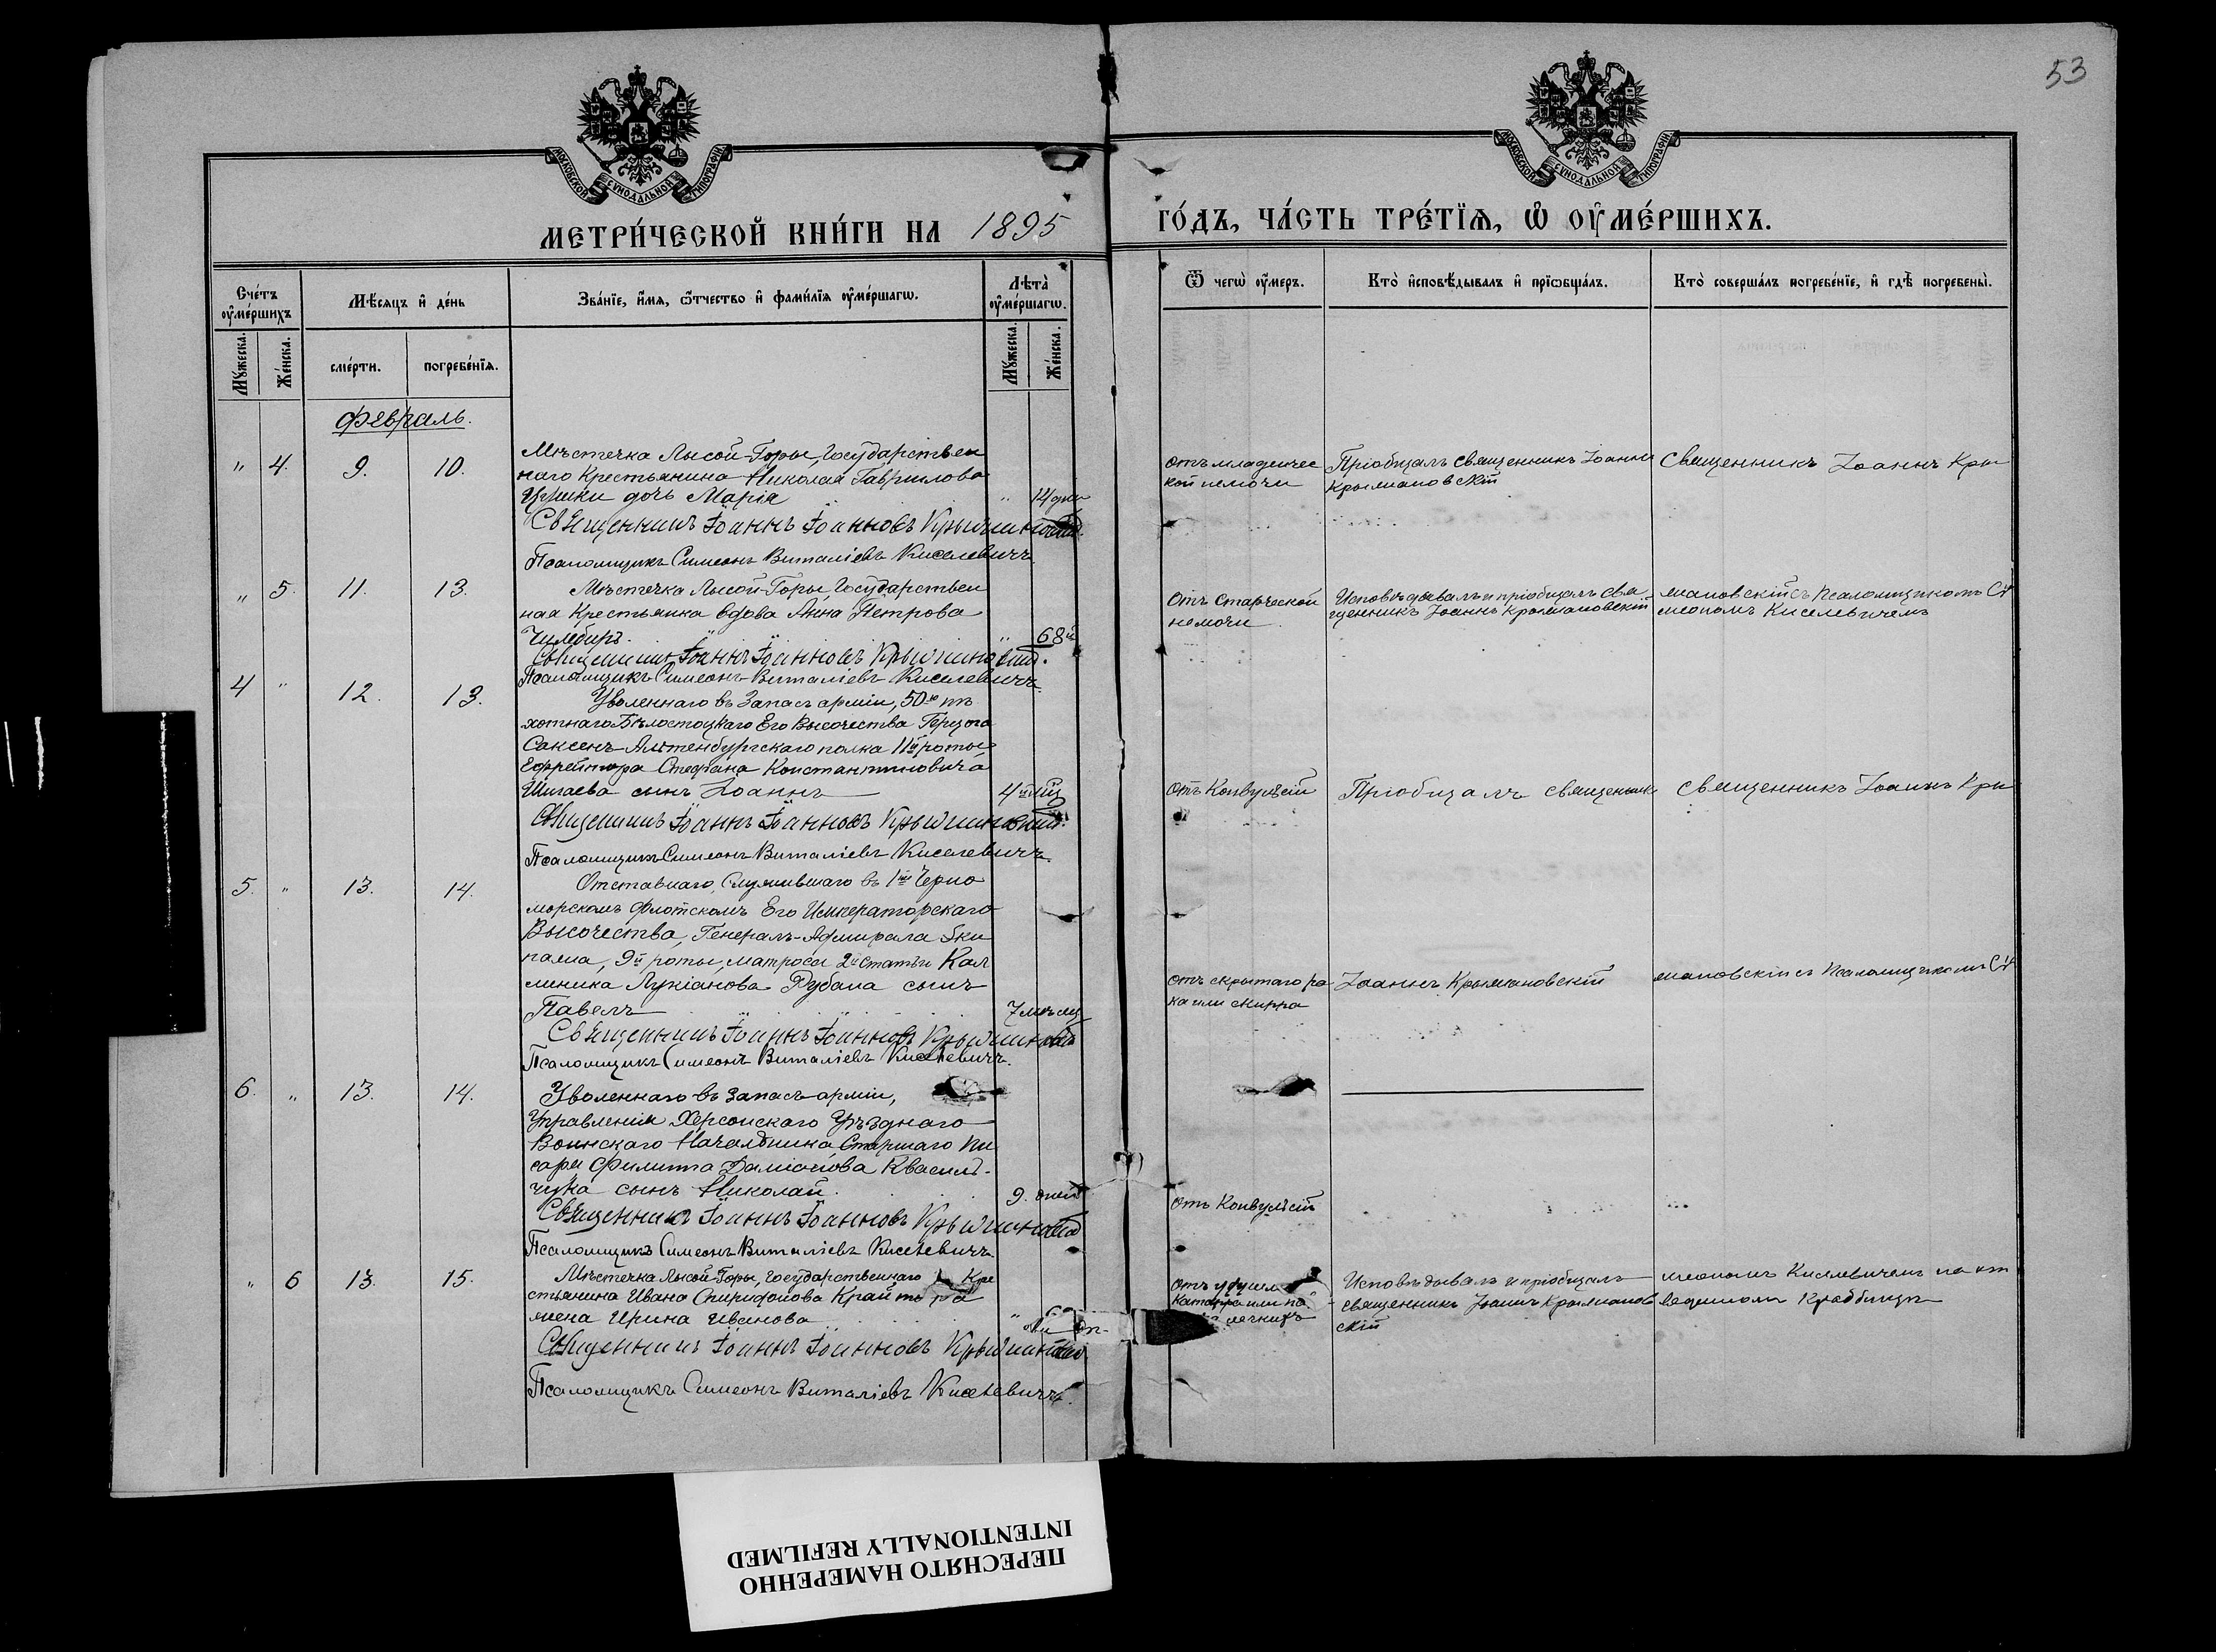 53
МОСКОВСКОЙ СУНОДАЛЬНОЙ ТИПОГРАФІИ
МОСКОВСКОЙ СУНОДАЛЬНОЙ ТИПОГРАФІИ
МЕТРИ́ЧЕСКОЙ КНИ́ГИ НА 1895
ГО́ДЪ, ЧА́СТЬ ТРЕ́ТІѦ, Ѡ ОУМЕ́РШИХЪ.
Сче́тъ оумéршихъ
Мѣ́сяцъ и де́нь
Зва́нїе, и́мѧ, ѿтчество и фами́лїѧ оумéршагѡ.
Лѣта̀ оумéршагѡ.
Му́жеска.
Же́нска.
смéрти.
погребе́нїѧ.
Му́жеска.
Же́нска.
Ѿ чегѡ̀ оумеръ.
Кто̀ исповѣ́дывалъ и прїѡбща́лъ.
Кто̀ соверша́лъ погребе́нїе, и гдѣ̀ погребены̀.
Февраль.
" 4. 9. 10.
Мѣстечка Лысой-Горы, Государствен
наго Крестьянина Николая Гаврилова
дочь Марія " 14 дней
Священникъ Іоаннъ Іоанновъ Крыжановскій.
Псаломщикъ Симеонъ Виталіевъ Киселевичъ.
отъ младенчес
кой немочи
Пріобщалъ священникъ Іоаннъ
Крыжановскій
Священникъ Іоаннъ Кры
" 5. 11. 13.
Мѣстечка Лысой-Горы, Государствен
ная Крестьянка вдова Анна Петрова
Чимбиръ. " 68
Священникъ Іоаннъ Іоанновъ Крыжановскій.
Псаломщикъ Симеонъ Виталіевъ Киселевичъ.
Отъ старческой
немочи
Исповѣдывалъ и пріобщалъ свя
щенникъ Іоаннъ Крыжановскій
жановскій съ Псаломщикомъ Си
меономъ Киселевичемъ
4 " 12. 13.
Уволеннаго въ запасъ арміи, 50го пѣ
хотнаго Бѣлостоцкаго Его Высочества Герцога
Саксенъ-Альтенбургскаго полка 11й роты
Ефрейтора Стефана Константиновича
Шигаева сынъ Іоаннъ 4
Священникъ Іоаннъ Іоанновъ Крыжановскій.
Псаломщикъ Симеонъ Виталіевъ Киселевичъ.
Отъ Конвульсій
Пріобщалъ священникъ
Священникъ Іоаннъ Кры
5. " 13. 14.
Отставнаго, служившаго въ 1мъ Черно
морскомъ флотскомъ Его Императорскаго
Высочества, Генералъ-Адмирала Эки
пажа, 9й роты, матроса 2й статьи Кал
линика Лукіанова Рубана сынъ
Павелъ 7 мѣсяц
Священникъ Іоаннъ Іоанновъ Крыжановскій
Псаломщикъ Симеонъ Виталіевъ Киселевичъ.
отъ скрытаго ра
ка или скирра
Іоаннъ Крыжановскій
жановскій съ Псаломщикомъ Си
6. " 13. 14.
Уволеннаго въ запасъ арміи,
Управленія Херсонскаго Уѣзднаго
Воинскаго Начальника, Старшаго Пи
саря Филиппа Даміанова Квасиль-
чука сынъ Николай. 9. дней
Священникъ Іоаннъ Іоанновъ Крыжановскій
Псаломщикъ Симеонъ Виталіевъ Киселевичъ.
Отъ Конвульсій
" 6 13. 15.
Мѣстечка Лысой-Горы, Государственнаго Кре
стьянина Ивана Спиридонова
жена Ирина Иванова "
Священникъ Іоаннъ Іоанновъ Крыжановскій
Псаломщикъ Симеонъ Виталіевъ Киселевичъ.
Отъ
или
Исповѣдывалъ и пріобщалъ
священникъ Іоаннъ Крыжанов
скій
меономъ Киселевичемъ на от
веденномъ Кладбищѣ
ПЕРЕСНЯТО НАМЕРЕННО
INTENTIONALLY REFILMED